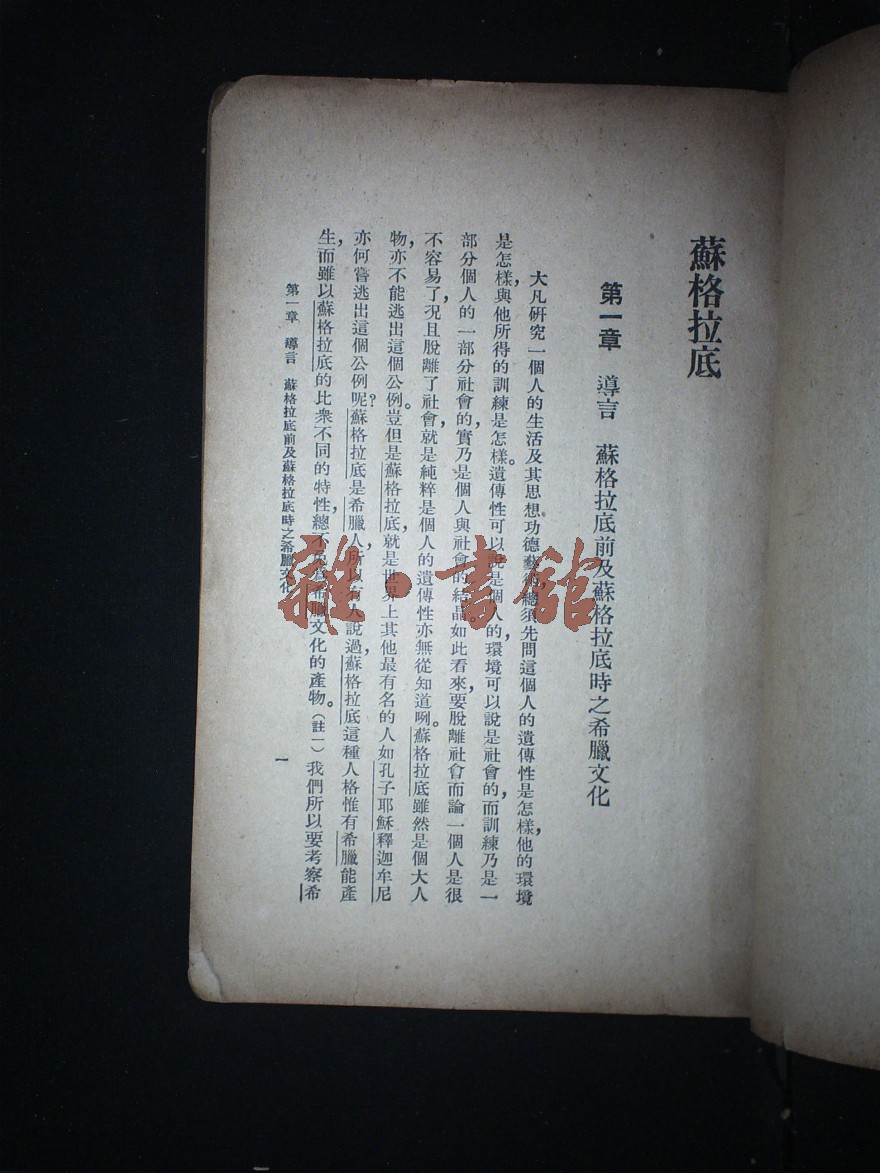 蘇格拉底
第一章　導言　蘇格拉底前及蘇格拉底時之希臘文化
大凡研究一個人的生活及其思想功德藝術，總須先問這個人的遺傳性是怎樣，他的環境
是怎樣，與他所得的訓練是怎樣。遺傳性可以說是個人的，環境可以說是社會的，而訓練乃是一
部分個人的一部分社會的，實乃是個人與社會的結晶。如此看來，要脫離社會而論一個人是很
不容易了，況且脫離了社會，就是純粹是個人的遺傳性亦無從知道咧。蘇格拉底雖然是個大人
物，亦不能逃出這個公例。豈但是蘇格拉底，就是世界上其他最有名的人如孔子耶穌釋迦牟尼
亦何嘗逃出這個公例呢？蘇格拉底是希臘人，所以有人說過，蘇格拉底這種人格惟有希臘能產
生，而雖以蘇格拉底的比衆不同的特性，總不免爲希臘文化的產物。（註一）我們所以要考察希
第一章　導言　蘇格拉底前及蘇格拉底時之希臘文化
一
雜·書館